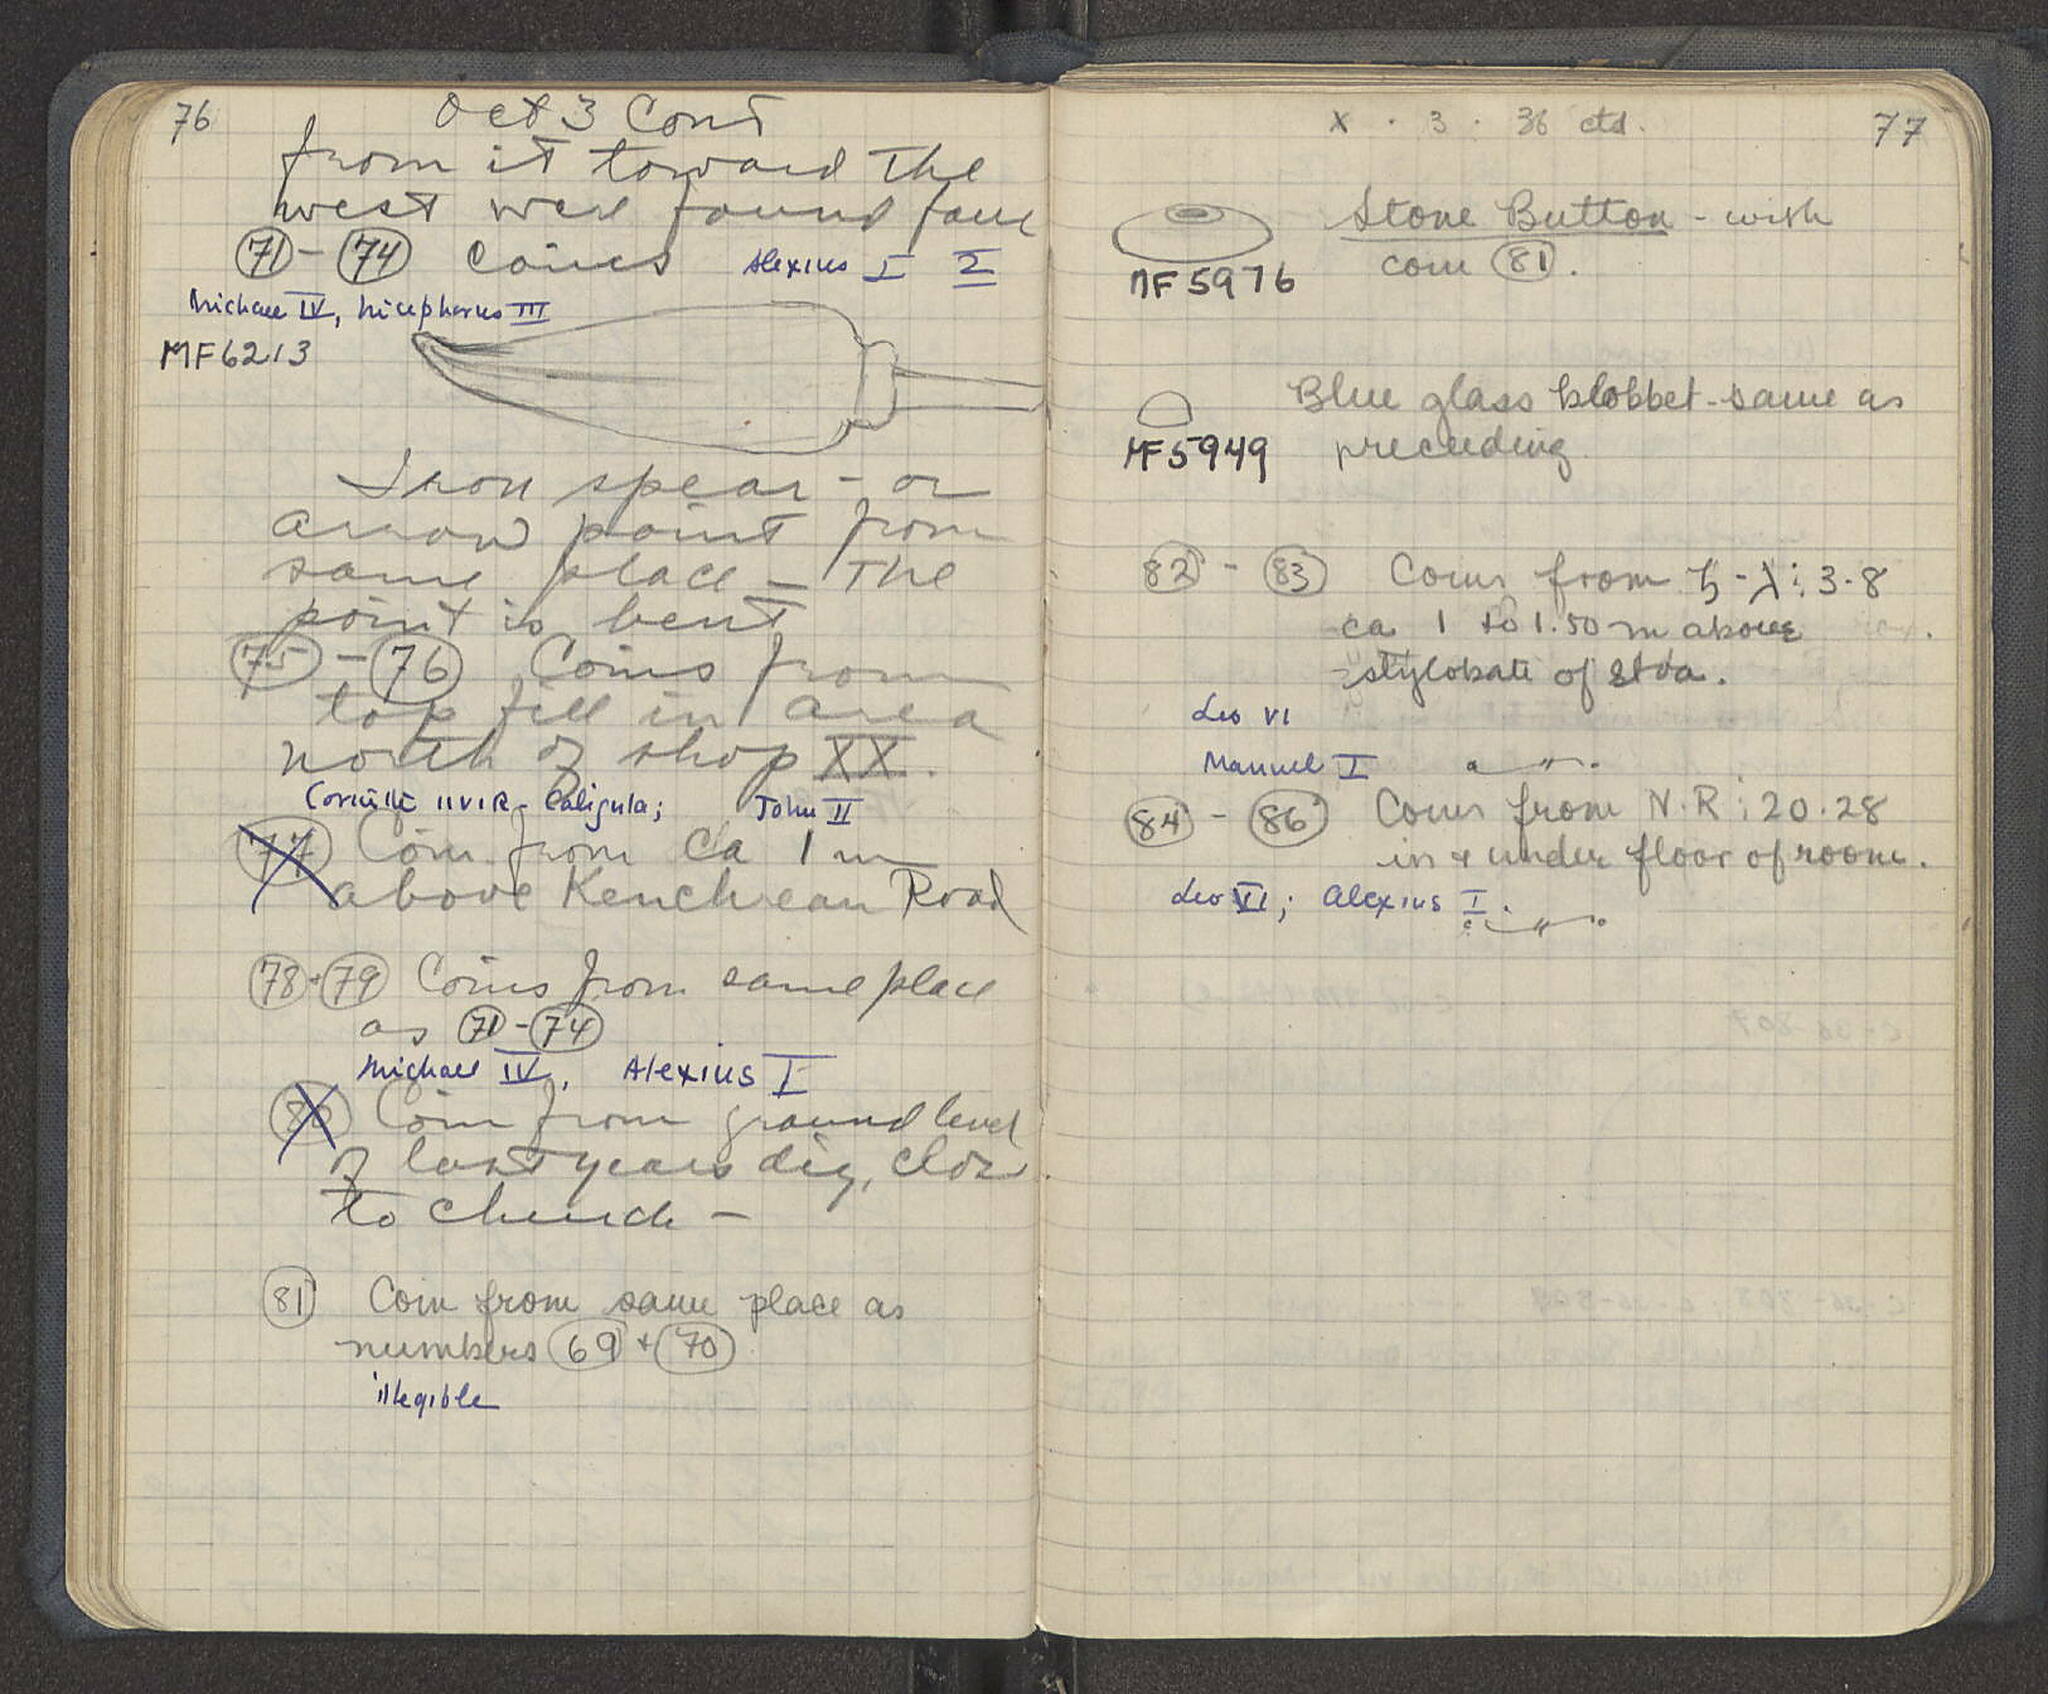 76
Oct 3 Cont
from it toward the
west were found four
71 - 74 coins Alexius I 2
Michael IV, Nicephorus III
MF6213
Iron spear - or
arrow point from
same place - The
point is bent
75 - 76 Coins from
top fill in area
north of shop XX.
Corinth IIVIR - Caligula; John II
77 Coin from ca 1 m
above Kenchrean Road
78 + 79 Coins from same place
as 71 - 74
Michael IV, Alexius I
80 Coin from ground level
of last years dig, close
to church -
81 Coin from same place as
numbers 69 + 70
illegible
X · 3 · 36 ctd. 77
Stone Button - with
coin 81.
MF5976
Blue glass blobbet - same as
preceeding
MF5949
82 - 83 Coins from - λ: 3-8
ca 1 to 1.50 m above
stylobate of stoa.
Leo VI
Manuel I
84 - 86 Coins from N-R: 20-28
in + under floor of room.
Leo VI; Alexius I.